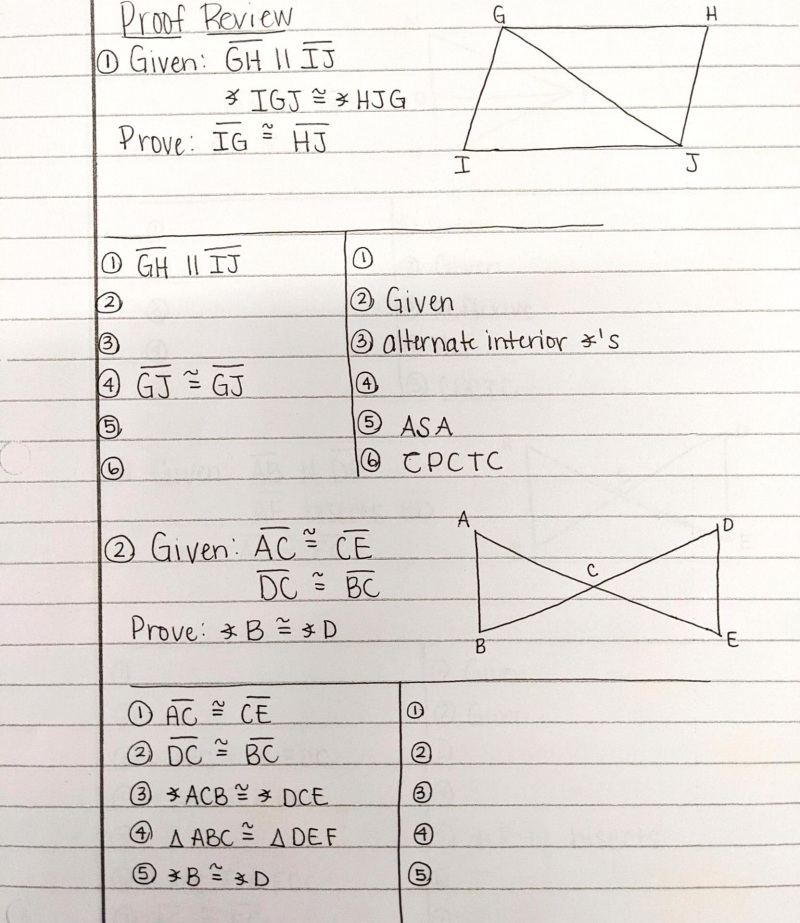 Proof Review
① Given: GH || IJ
∡ IGJ ≅ ∡ HJG
Prove: IG ≅ HJ
G H
I J
① GH || IJ ①
② ② Given
③ ③ alternate interior ∡'s
④ GJ ≅ GJ ④
⑤ ⑤ ASA
⑥ ⑥ CPCTC
② Given: AC ≅ CE
DC ≅ BC
Prove: ∡ B ≅ ∡ D
A D
C
B E
① AC ≅ CE ①
② DC ≅ BC ②
③ ∡ ACB ≅ ∡ DCE ③
④ △ ABC ≅ △ DEF ④
⑤ ∡ B ≅ ∡ D ⑤